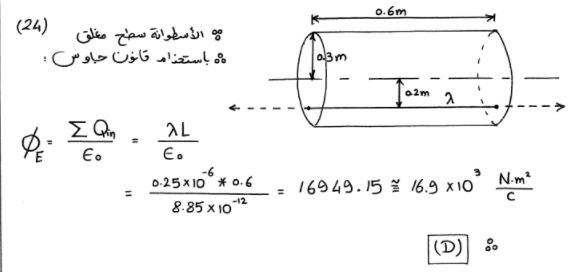 (24)
∴ الأسطوانة سطح مغلق
∴ باستخدام قانون جاوس :
0.6m
0.3m
0.2m
λ
Φ_E = ΣQin/ε₀ = λL/ε₀
= 0.25×10⁻⁶ * 0.6 / 8.85×10⁻¹² = 16949.15 ≅ 16.9 ×10³ N.m²/C
(D) ∴